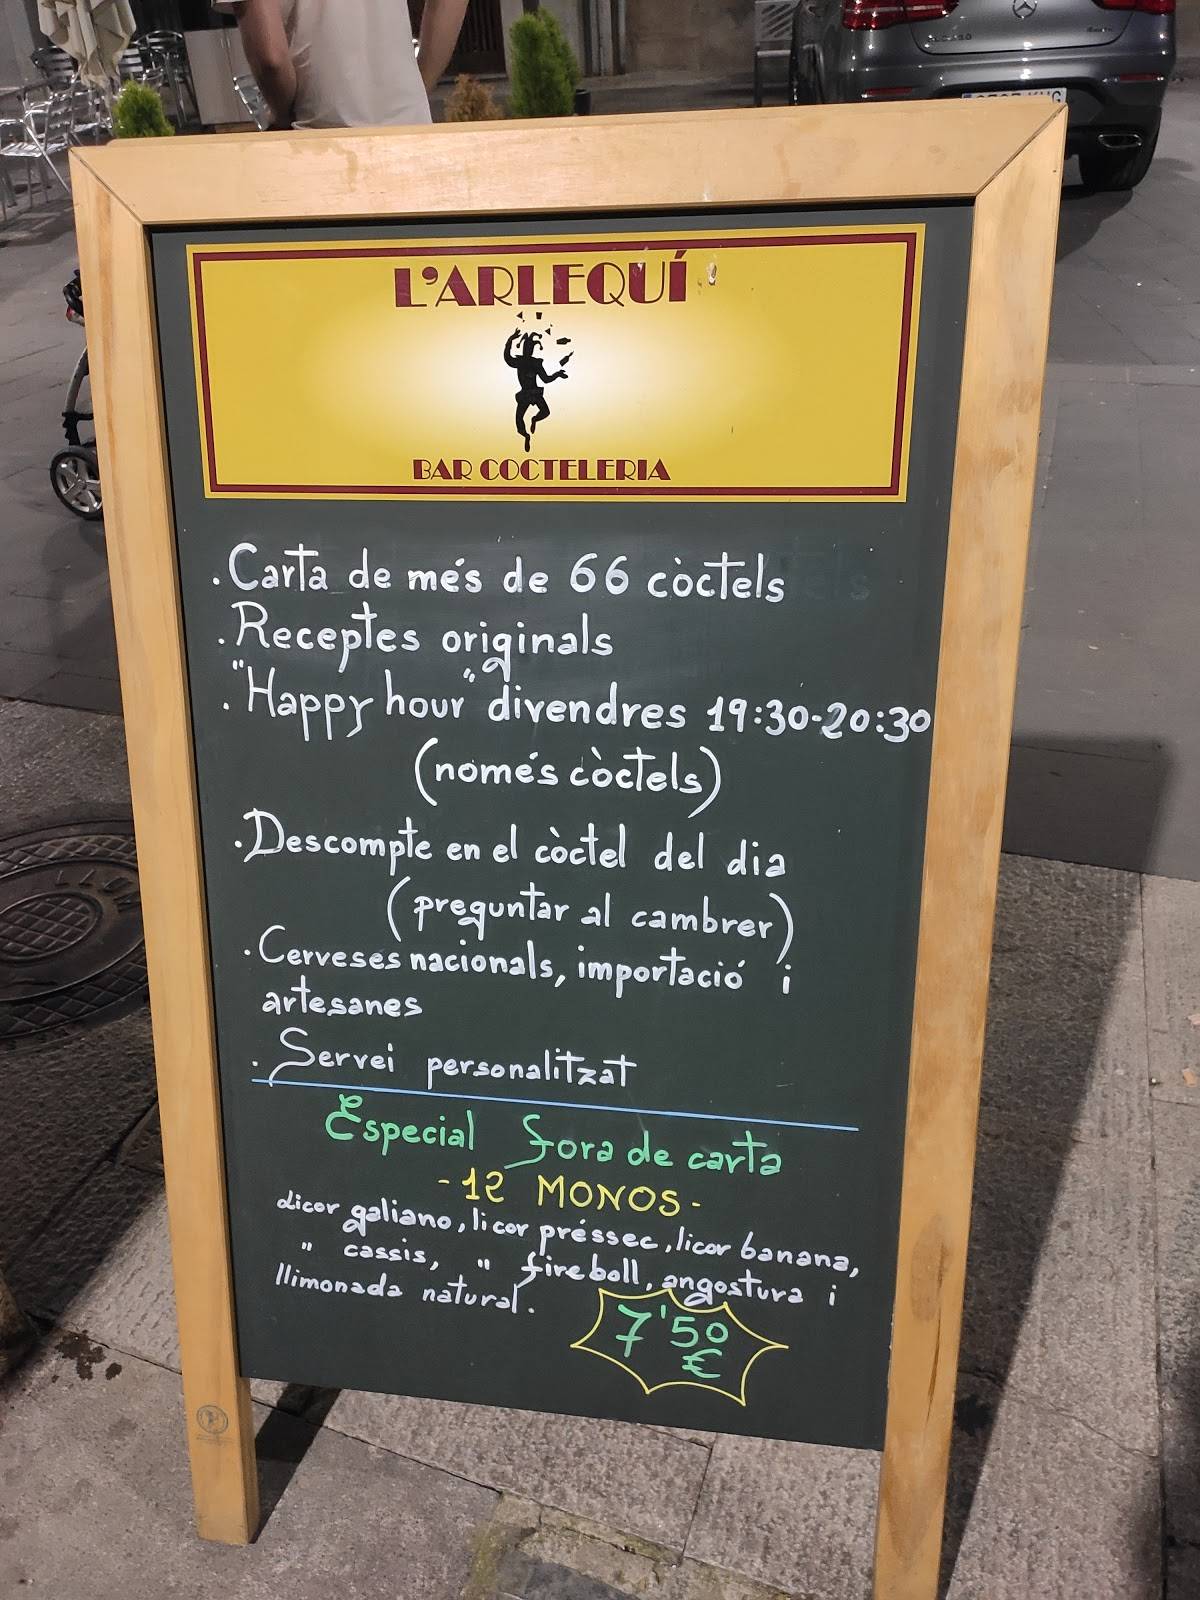 L'ARLEQUÍ
BAR COCTELERIA
. Carta de més de 66 còctels
. Receptes originals
. "Happy hour" divendres 19:30-20:30
(només còctels)
. Descompte en el còctel del dia
(preguntar al cambrer)
. Cerveses nacionals, importació i
artesanes
. Servei personalitzat
Especial fora de carta
- 12 MONOS -
Licor galiano, licor préssec, licor banana,
" cassis, " fireboll, angostura i
llimonada natural.
7'50
€